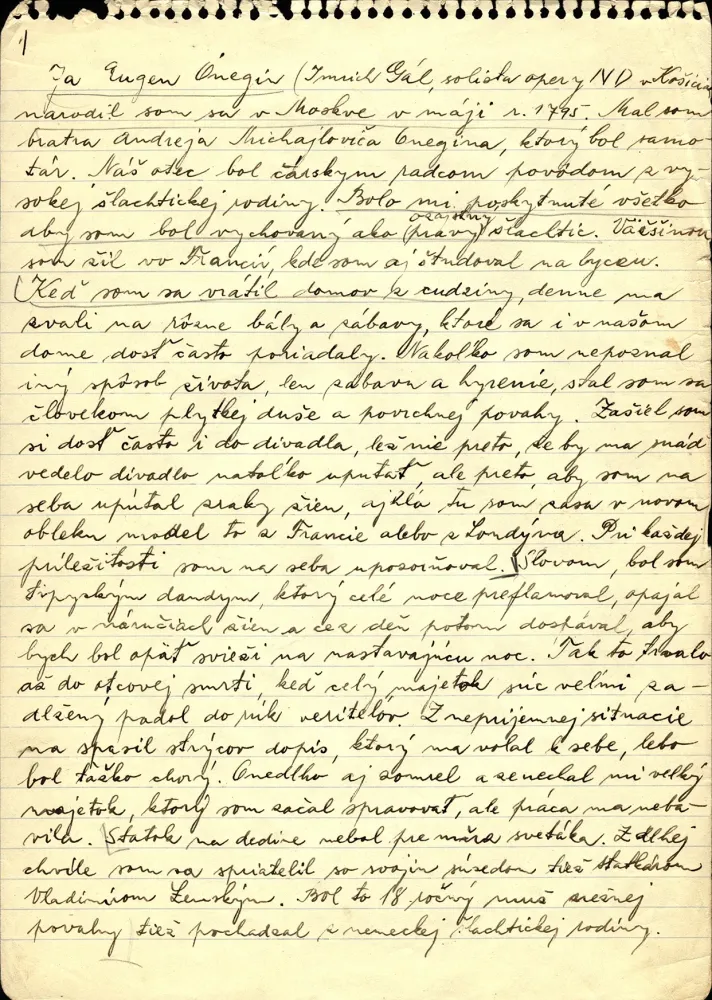 1
Ja Eugen Onegin (Imrich Gál, solista opery ND v Košicia
narodil som sa v Moskve v máji r. 1795. Mal som
bratra Andreja Michajloviča Onegina, ktorý bol samo-
tár. Náš otec bol cárskym radcom povodom z vy-
sokej šlachtickej rodiny. Bolo mi poskytnuté všetko
ozajstný
aby som bol vychovaný ako (pravý) šlachtic. Väčšinou
som žil vo Francii, kde som aj študoval na lyceu.
(Keď som sa vrátil domov z cudziny, denne ma
zvali na rôzne bály a zábavy, ktoré sa i v našom
dome dosť často poriadaly. Nakoľko som nepoznal
iný spôsob života, len zábavu a hyrenie, stal som sa
človekom plytkej duše a povrchnej povahy. Zašiel som
si dosť často i do divadla, lež nie preto, že by ma snáď
vedelo divadlo natoľko uputať, ale preto, aby som na
seba upútal zraky žien, ajhľa tu som zasa v novom
obleku model to z Francie alebo z Londýna. Pri každej
príležitosti som na seba upozorňoval. Slovom, bol som
tipyckým dandym, ktorý celé noce preflamoval, opájal
sa v náručiach žien a cez deň potom dospával, aby
bych bol opäť svieži na nastavajúcu noc. Tak to trvalo
až do otcovej smrti, keď celý majetok súc veľmi za-
dlžený padol do rúk veriteľov. Z neprijemnej situacie
ma spasil strýcov dopis, ktorý ma volal k sebe, lebo
bol ťažko chorý. Onedlho aj zomrel a zanechal mi velký
majetok, ktorý som začal spravovať, ale práca ma neba-
vila. Statok na dedine nebol pre mňa svetáka. Z dlhej
chvíle som sa spriatelil so svojim súsedom tiež statkárom
Vladimirom Lenským. Bol to 18 ročný muž snežnej
povahy tiež pochadzal z nemeckej šlachtickej rodiny.